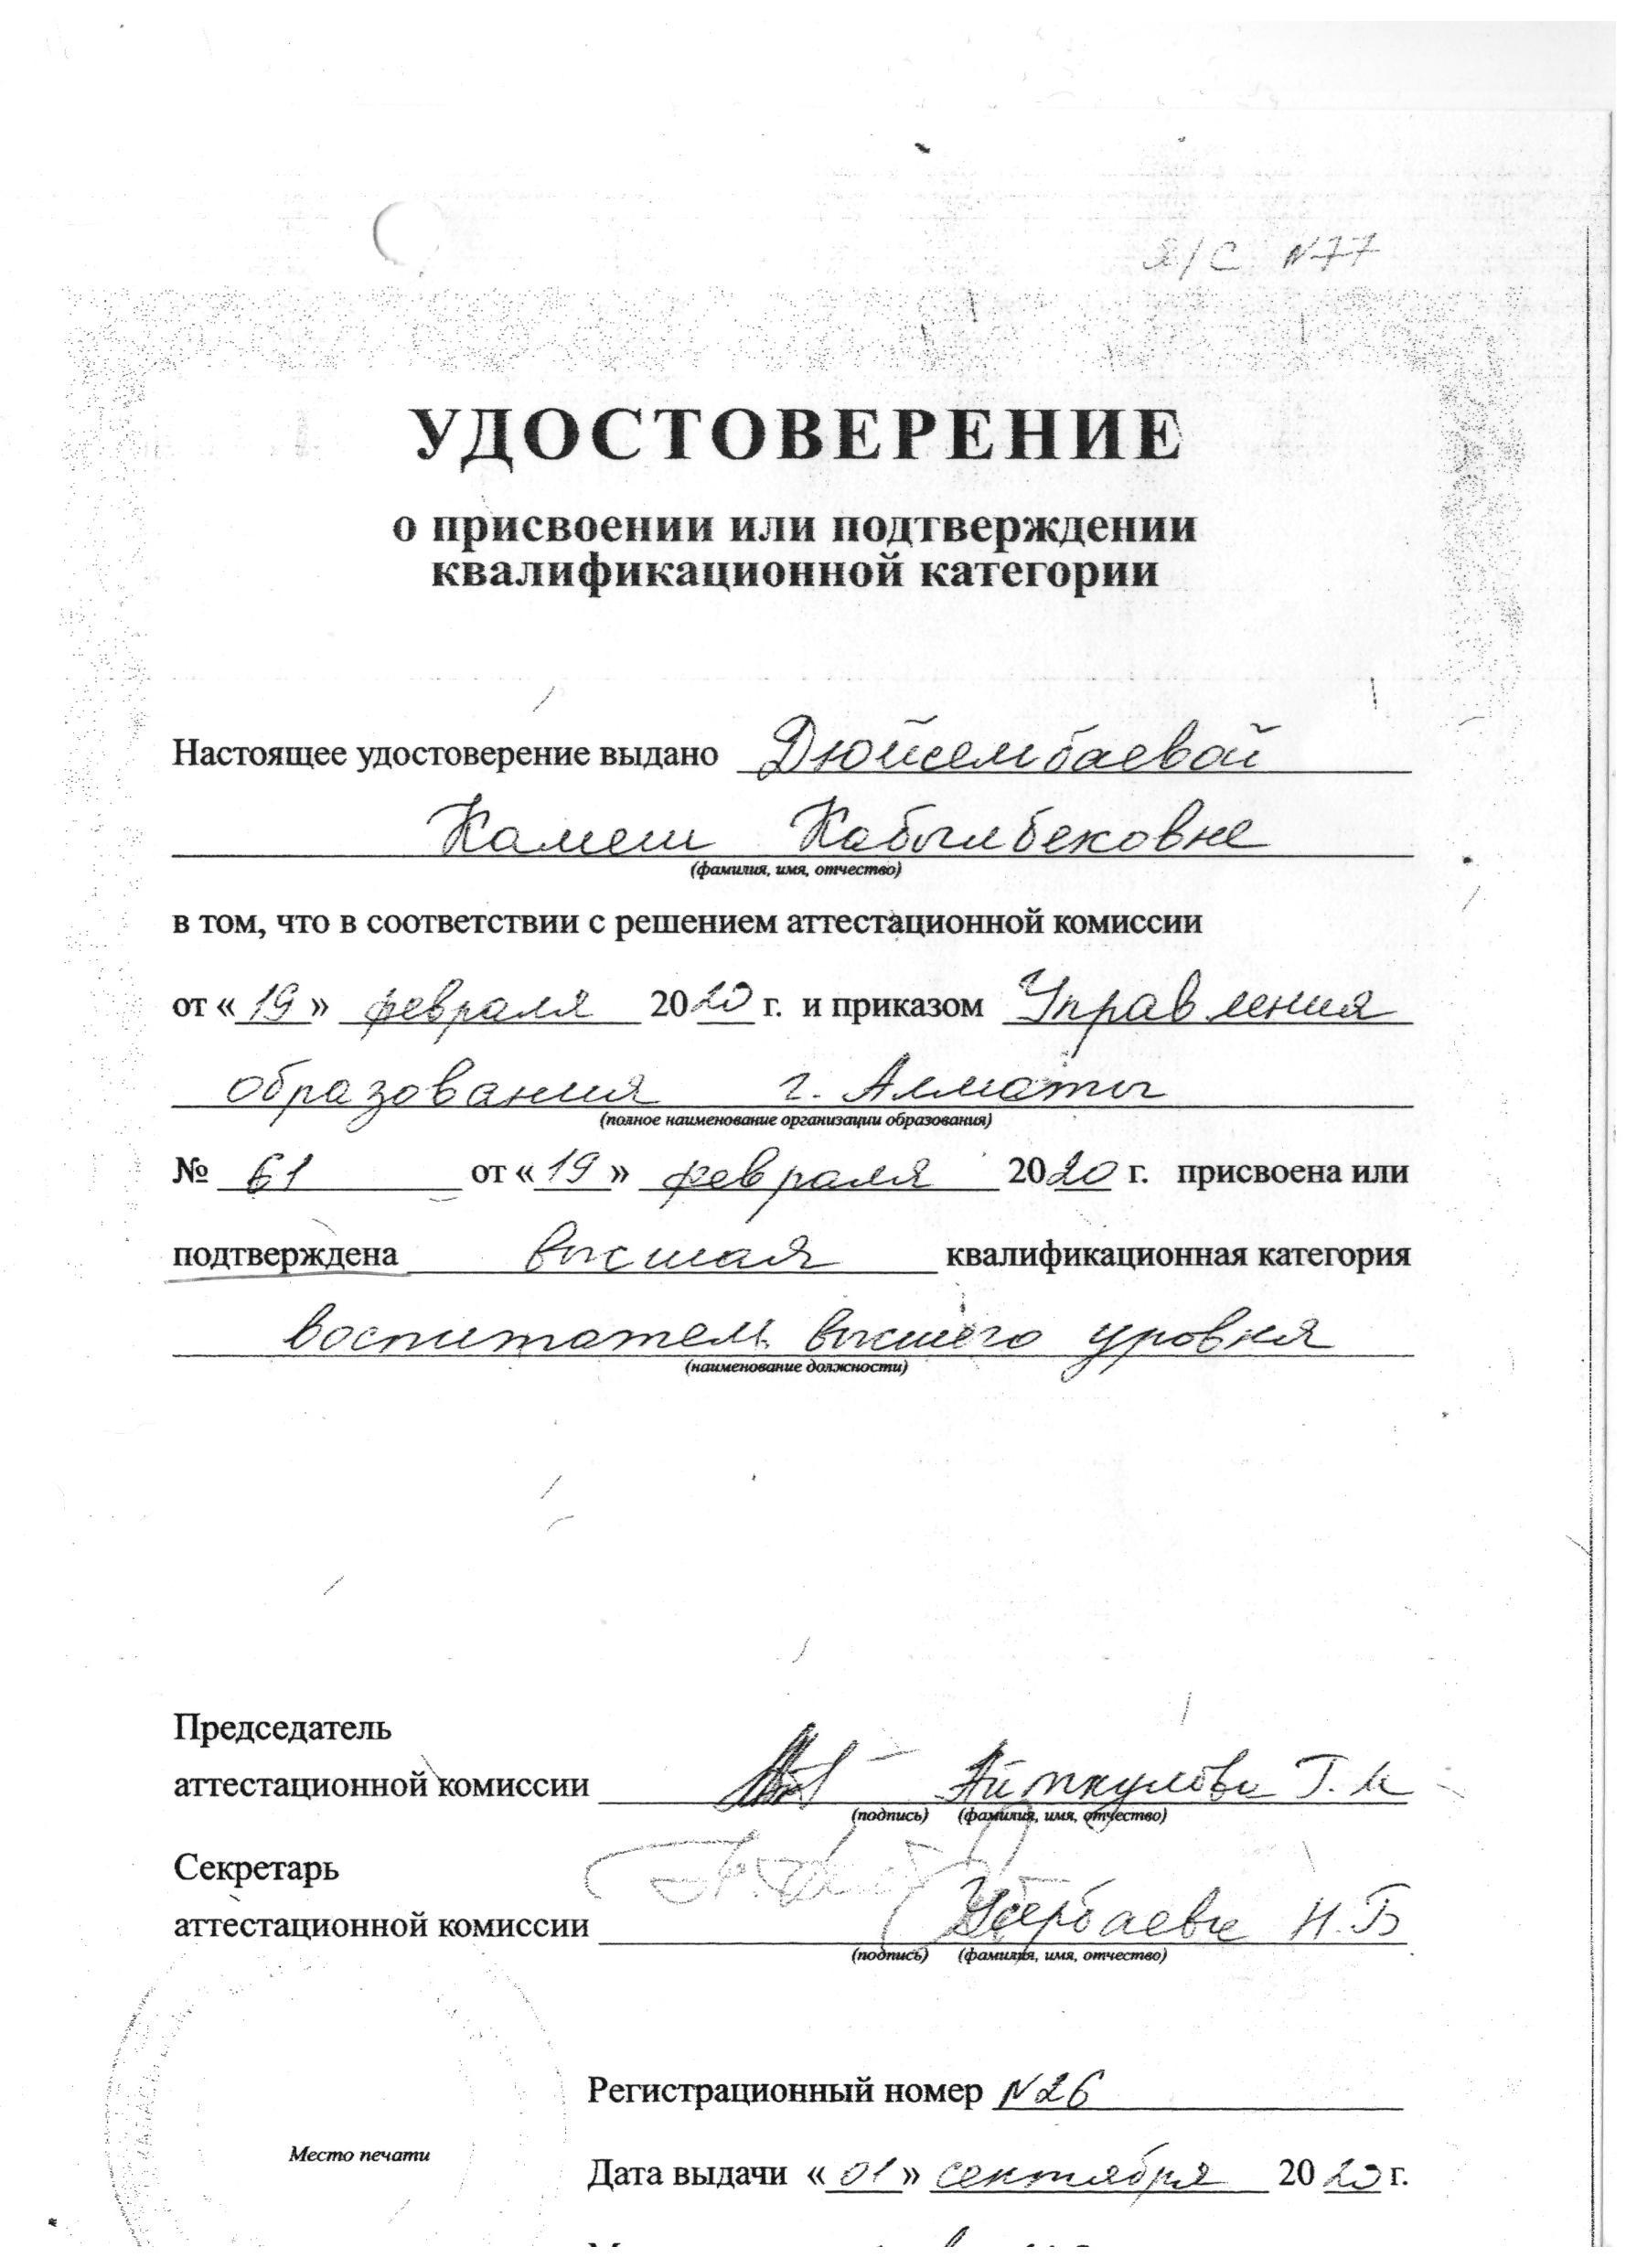 я/с №77
УДОСТОВЕРЕНИЕ
о присвоении или подтверждении
квалификационной категории
Настоящее удостоверение выдано Дюйсембаевой
Камеш Кабылбековне
(фамилия, имя, отчество)
в том, что в соответствии с решением аттестационной комиссии
от «19» февраля 2020 г. и приказом Управления
образования г. Алматы
(полное наименование организации образования)
№ 61 от «19» февраля 2020 г. присвоена или
подтверждена высшая квалификационная категория
воспитатель высшего уровня
(наименование должности)
Председатель
аттестационной комиссии Айткулова Г.
(подпись) (фамилия, имя, отчество)
Секретарь
аттестационной комиссии Н.Б
(подпись) (фамилия, имя, отчество)
Регистрационный номер №26
Место печати
Дата выдачи «01» сентября 2020 г.